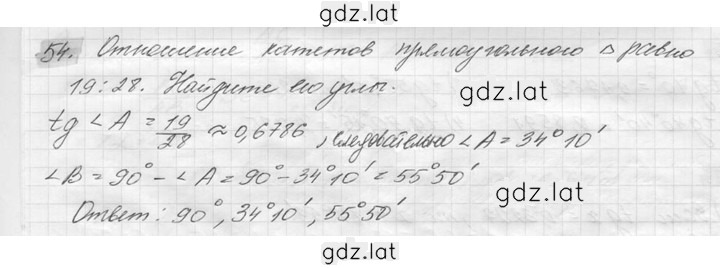 gdz.lat
54. Отношение катетов прямоугольного △ равно
19:28. Найдите его углы.
gdz.lat
tg ∠A = 19/28 ≈ 0,6786, следовательно ∠A = 34°10'
∠B = 90° - ∠A = 90° - 34°10' = 55°50'
Ответ: 90°, 34°10', 55°50'
gdz.lat
gdz.lat